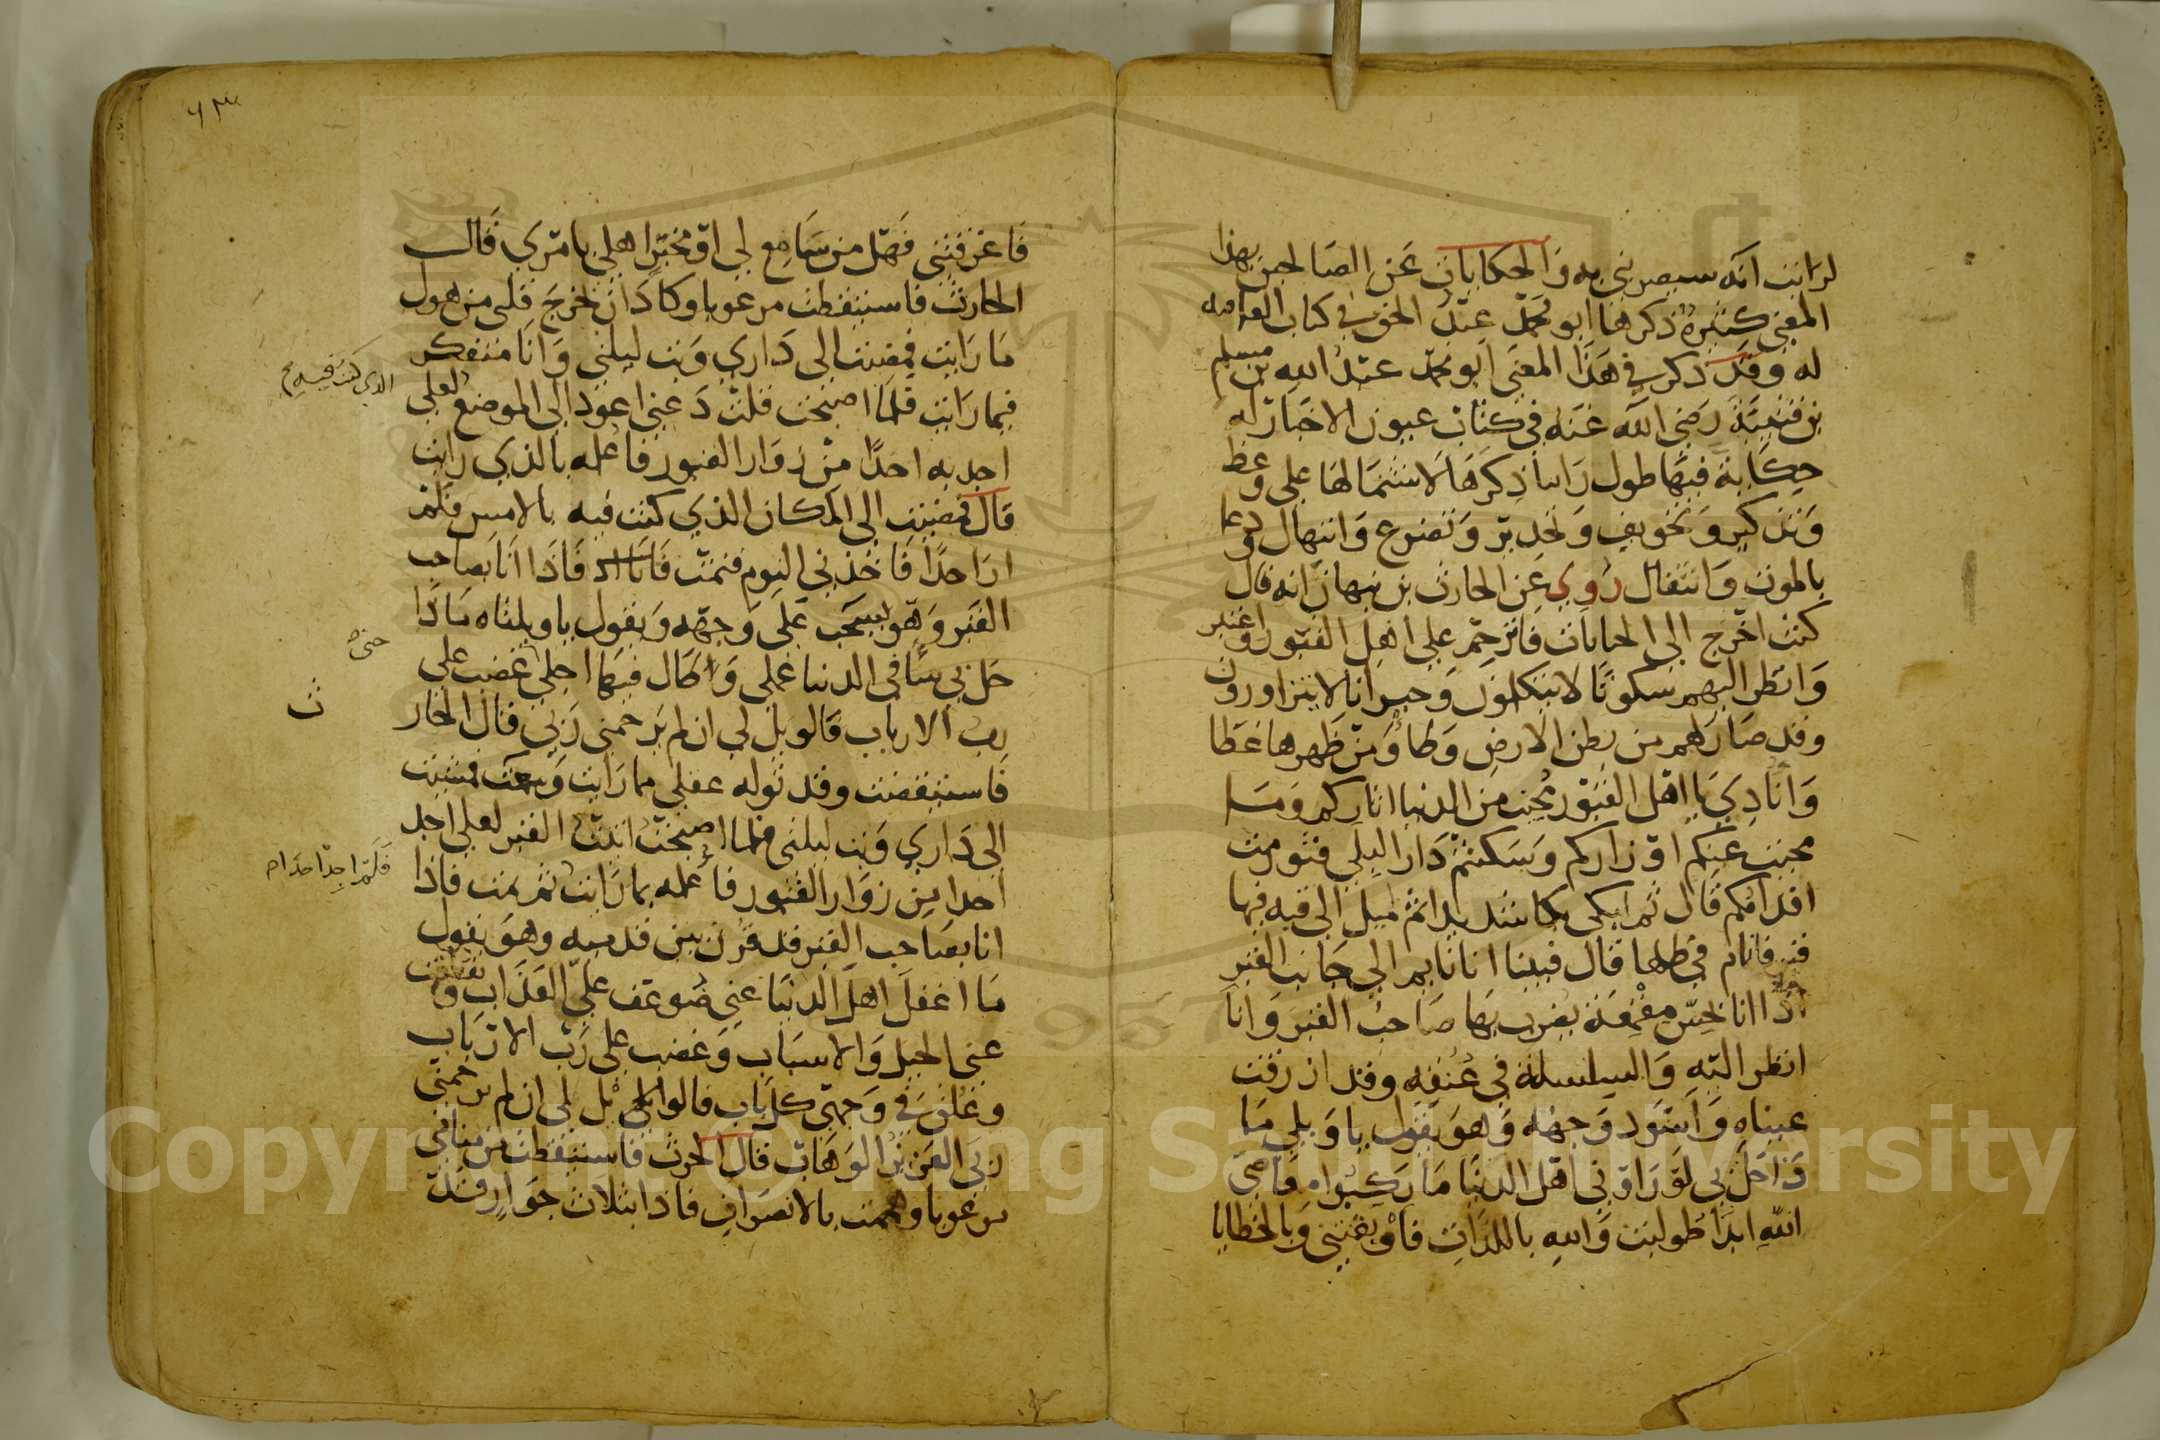 لرايت انه سيصرني به والحكايات عن الصالحين بهذا
المعنى كثيرة ذكرها ابو محمد عبد الحق في كتاب العاقبه
له وقد ذكر في هذا المعنى ابو محمد عبد الله بن مسلم
بن قتيبة رضي الله عنه في كتاب عيون الاخبار له
حكاية فيها طول راينا ذكرها لاشتمالها على وعظ
وتذكير وتخويف وتحذير وتضرع وابتهال ودعا
بالموت وانتقال روي عن الحارث بن نبهان انه قال
كنت اخرج الى الجبانات فاترحم على اهل القبور واعتبر
وانظر اليهم سكوتا لا يتكلمون وجيرانا لا يتزاورون
وقد صار لهم من بطن الارض وطاء ومن ظهرها غطا
وانادي يا اهل القبور محيت من الدنيا اثاركم وما
محيت عنكم اوزاركم وسكنتم دار البلى فتورمت
اقدامكم قال ثم ابكي بكا شديدا ثم اميل الى قبه فيها
قبر فانام في ظلها قال فبينا انا نايم الى جانب القبر
اذا انا بحس مقمعة يضرب بها صاحب القبر وانا
انظر اليه والسلسلة في عنقه وقد ازرقت
عيناه واسود وجهه وهو يقول يا ويلي ما
ذا حل بي لو راوني اهل الدنيا ما ركبوا معاصي
الله ابدا طولبت والله باللذات فاوبقتني وبالخطايا
٦٣
فاغرقتني فهل من سامع لي او مخبر اهلي بامري قال
الحارث فاستيقظت مرعوبا وكاد ان يخرج قلبي من هول
ما رايت فمضيت الى داري وبت ليلتي وانا متفكر
فيما رايت فلما اصبحت قلت دعني اعود الى الموضع لعلي
الذي كنت فيه صح
اجد به احدا من زوار القبور فاعلمه بالذي رايت
قال فمضيت الى المكان الذي كنت فيه بالامس فلم
ار احدا فاخذني النوم فنمت فاذا انا بصاحب
القبر وهو يسحب على وجهه ويقول يا ويلتاه ماذا
حل بي سا في الدنيا عملي وطال فيها اجلي غضب علي
حتى
رب الارباب فالويل لي ان لم يرحمني ربي قال الحار
ث
فاستيقضت وقد توله عقلي مما رايت وسمعت فمشيت
الى داري وبت ليلتي فلما اصبحت اتيت القبر لعلي اجد
احدا من زوار القبور فاعلمه بما رايت ثم نمت فاذا
فلم اجد احدا
انا بصاحب القبر قد قرن بين قدميه وهو يقول
ما اغفل اهل الدنيا عني ضوعف علي العذاب وتقطعت
عني الحيل والاسباب وغضب علي رب الارباب
وغلق في وجهي كل باب فالويل لي ان لم يرحمني
ربي العزيز الوهاب قال الحرث فاستيقظت من منامي
مرعوبا وهممت بالانصراف فاذا بثلاث جوار قد